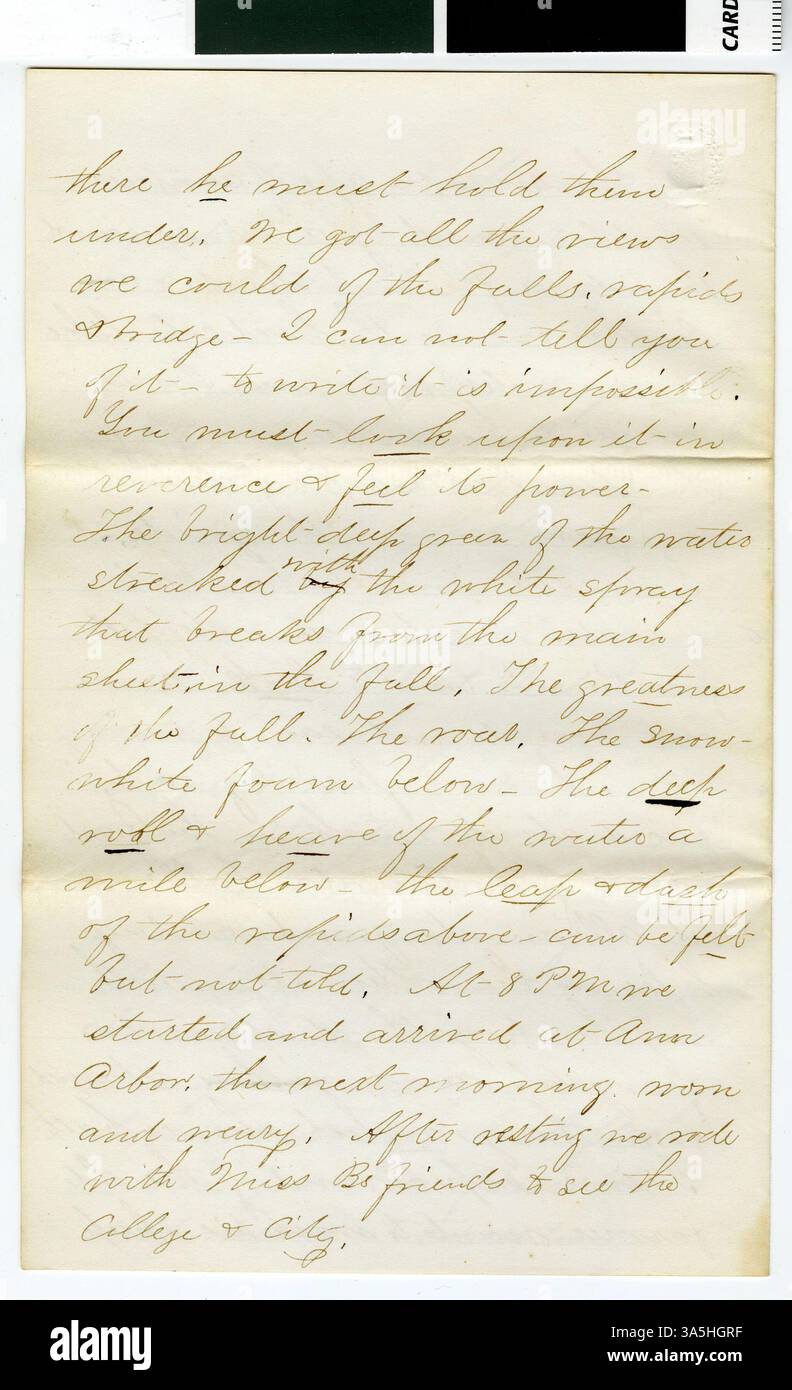 CARD
there he must hold them
under. We got all the views
we could of the falls, rapids
& bridge – I can not tell you
of it – to write it is impossible.
You must look upon it in
reverence & feel its power –
The bright deep green of the water
with
streaked by the white spray
that breaks from the main
sheet in the fall. The greatness
of the fall. The roar. The snow-
white foam below – The deep
roll & heave of the water a
mile below – the leap & dash
of the rapids above – can be felt
but not told. At 8 PM we
started and arrived at Ann
Arbor, the next morning, worn
and weary. After resting we rode
with Miss Bs friends to see the
College & City.
alamy
alamy
alamy
alamy
Image ID: 3A5HGRF
www.alamy.com